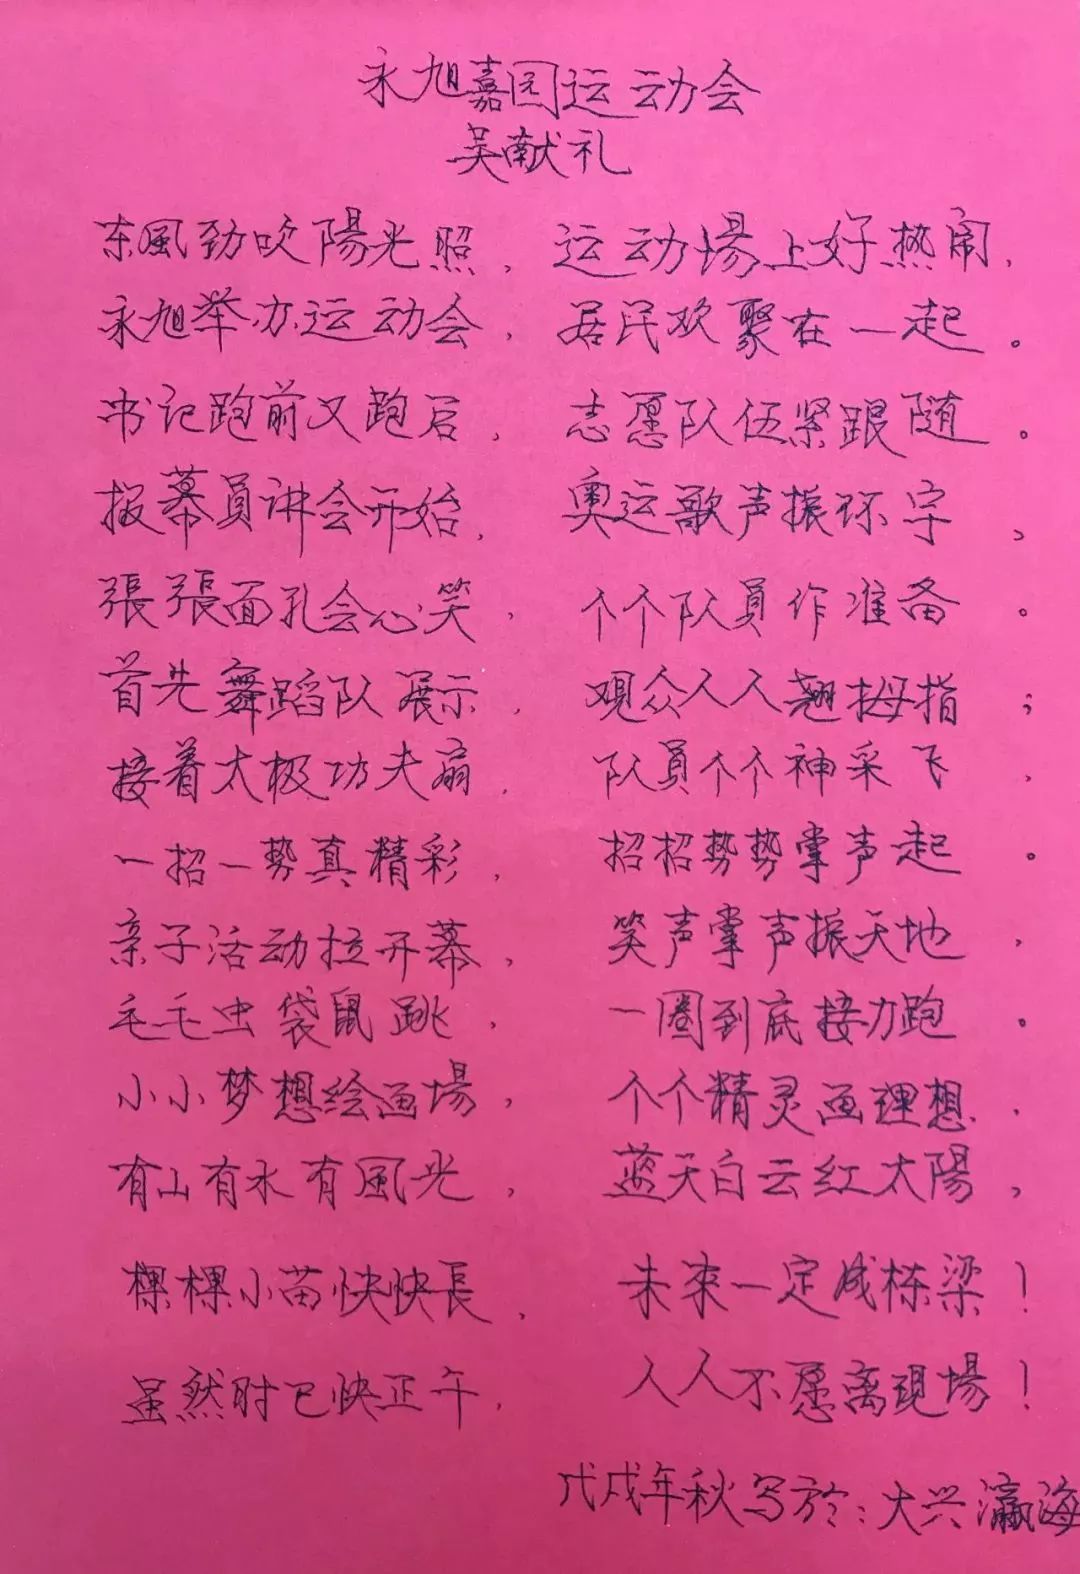 永旭嘉园运动会
吴献礼
东風劲吹陽光照，运动場上好热闹，
永旭举办运动会，居民欢聚在一起。
书记跑前又跑后，志愿队伍紧跟随。
报幕員讲会开始，奥运歌声振环宇，
張張面孔会心笑，个个队員作准备。
首先舞蹈队展示，观众人人翘拇指；
接着太极功夫扇，队員个个神采飞，
一招一势真精彩，招招势势掌声起。
亲子活动拉开幕，笑声掌声振天地，
毛毛虫袋鼠跳，一圈到底接力跑。
小小梦想绘画場，个个精灵画理想，
有山有水有風光，蓝天白云红太陽，
棵棵小苗快快長，未來一定成栋梁！
虽然时已快正午，人人不愿离現場！
戊戌年秋写於：大兴瀛海